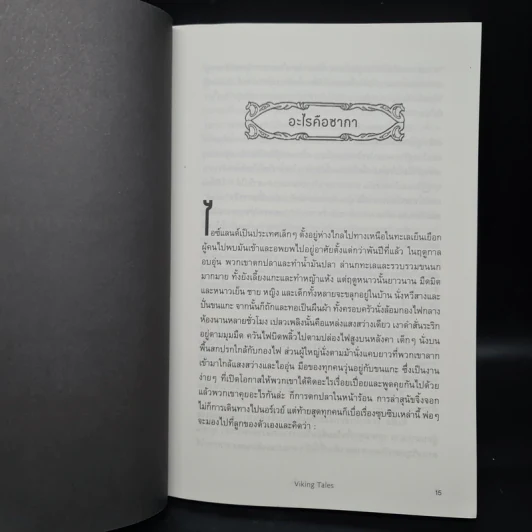 อะไรคือซากา
ไอซ์แลนด์เป็นประเทศเล็กๆ ตั้งอยู่ห่างไกลไปทางเหนือในทะเลเย็นเยือก
ผู้คนไปพบมันเข้าและอพยพไปอยู่อาศัยตั้งแต่กว่าพันปีที่แล้ว ในฤดูกาล
อบอุ่น พวกเขาตกปลาและทำน้ำมันปลา ล่านกทะเลและรวบรวมขนนก
มากมาย ทั้งยังเลี้ยงแกะและทำหญ้าแห้ง แต่ฤดูหนาวนั้นยาวนาน มืดมิด
และหนาวเย็น ชาย หญิง และเด็กทั้งหลายจะขลุกอยู่ในบ้าน นั่งหวีสางและ
ปั่นขนแกะ จากนั้นก็ถักและทอเป็นผืนผ้า ทั้งครอบครัวนั่งล้อมกองไฟกลาง
ห้องนานหลายชั่วโมง เปลวเพลิงนั้นคือแหล่งแสงสว่างเดียว เงาดำสั่นระริก
อยู่ตามมุมมืด ควันไฟบิดพลิ้วไปตามปล่องไฟสูงบนหลังคา เด็กๆ นั่งบน
พื้นสกปรกใกล้กับกองไฟ ส่วนผู้ใหญ่นั่งตามม้านั่งแคบยาวที่พวกเขาลาก
เข้ามาใกล้แสงสว่างและไออุ่น มือของทุกคนวุ่นอยู่กับขนแกะ ซึ่งเป็นงาน
ง่ายๆ ที่เปิดโอกาสให้พวกเขาได้คิดอะไรเรื่อยเปื่อยและพูดคุยกันไปด้วย
แล้วพวกเขาคุยอะไรกันล่ะ ก็การตกปลาในหน้าร้อน การล่าสุนัขจิ้งจอก
ไม่ก็การเดินทางไปนอร์เวย์ แต่ท้ายสุดทุกคนก็เบื่อเรื่องซุบซิบเหล่านี้ พ่อๆ
จะมองไปที่ลูกของตัวเองและคิดว่า :
Viking Tales
15